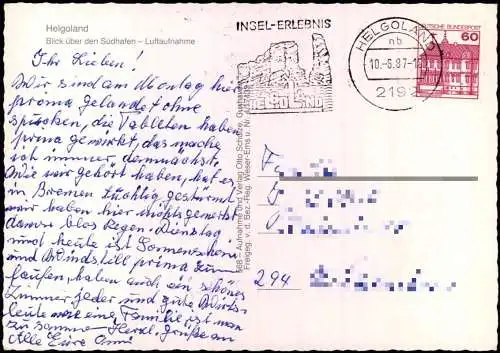 Helgoland
Blick über den Südhafen – Luftaufnahme
Ihr Lieben!
Wir sind am Montag hier
prima gelandet ohne
spucken, die Tabletten haben
prima gewirkt, das mache
ich immer, demnächst.
Wie wir gehört haben, hat es
in Bremen tüchtig gestürmt
wir haben hier nichts gemerkt
davon blos Regen. Dienstag
und heute ist Sonnenschein
und Windstill prima zum
laufen, haben auch ein schönes
Zimmer jeder und gute Wirts-
leute wie eine Familie ist man
zusammen Herzl. Grüße an
Alle Eure Omi
INSEL-ERLEBNIS
HELGOLAND
HELGOLAND
nb
10.-6.87-1
2192
DEUTSCHE BUNDESPOST
60
Aufnahme und Verlag Otto Schulze,
Freigeg. v. d. Bez.-Reg. Weser-Ems u. Nr.
294